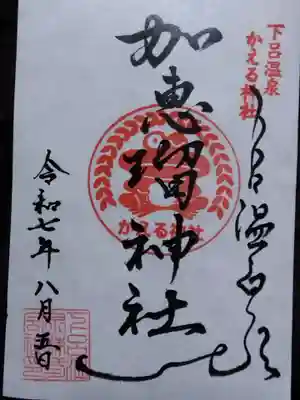 下呂温泉
かえる神社
下呂温泉
加恵瑠神社
かえる神社
令和七年八月